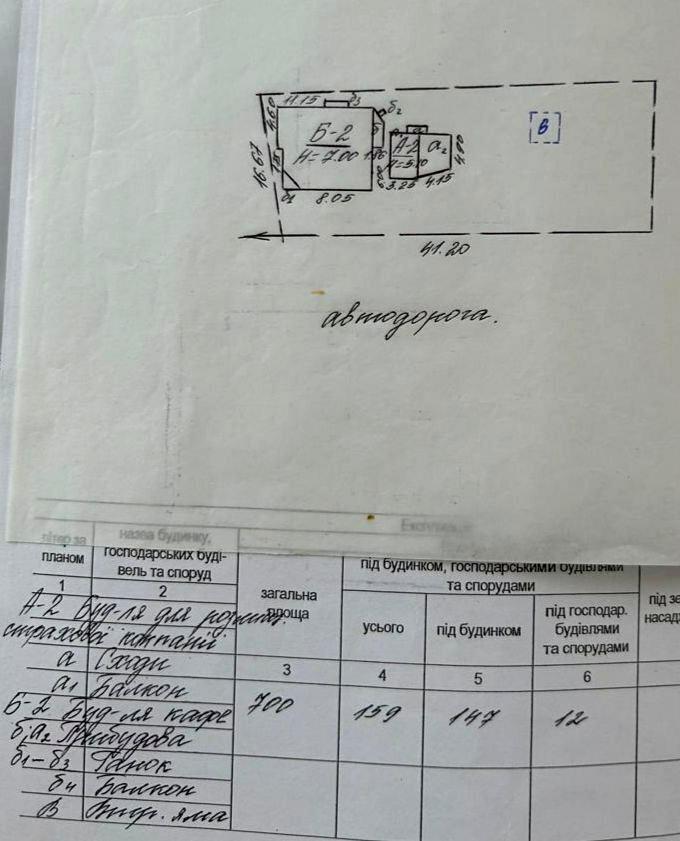 11.15
б3
б2
4.60
Б-2
H=7.00
б
1.86
а
А-2
H=5.10
а2
4.00
16.67
б1
8.05
6.00
3.25
4.15
В
41.20
автодорога.
літер за планом
назва будинку,
господарських буді-
вель та споруд
загальна
площа
під будинком, господарськими будівлями
та спорудами
усього
під будинком
під господар.
будівлями
та спорудами
під зе
насад
1
2
3
4
5
6
А-2 Буд-ля для розміщ.
страхової компанії
а Сходи
а1 Балкон
Б-2 Буд-ля кафе
700
159
147
12
б,а2 Прибудова
б1-б3 Ганок
б4 Балкон
В Вигр. яма